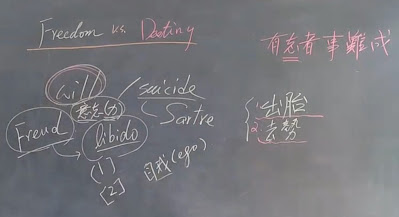 Freedom vs. Destiny
有志者事難成
will
suicide
意志(力)
Sartre
Freud
libido
[1]
[2]
自我(ego)
1 出胎
2 去勢